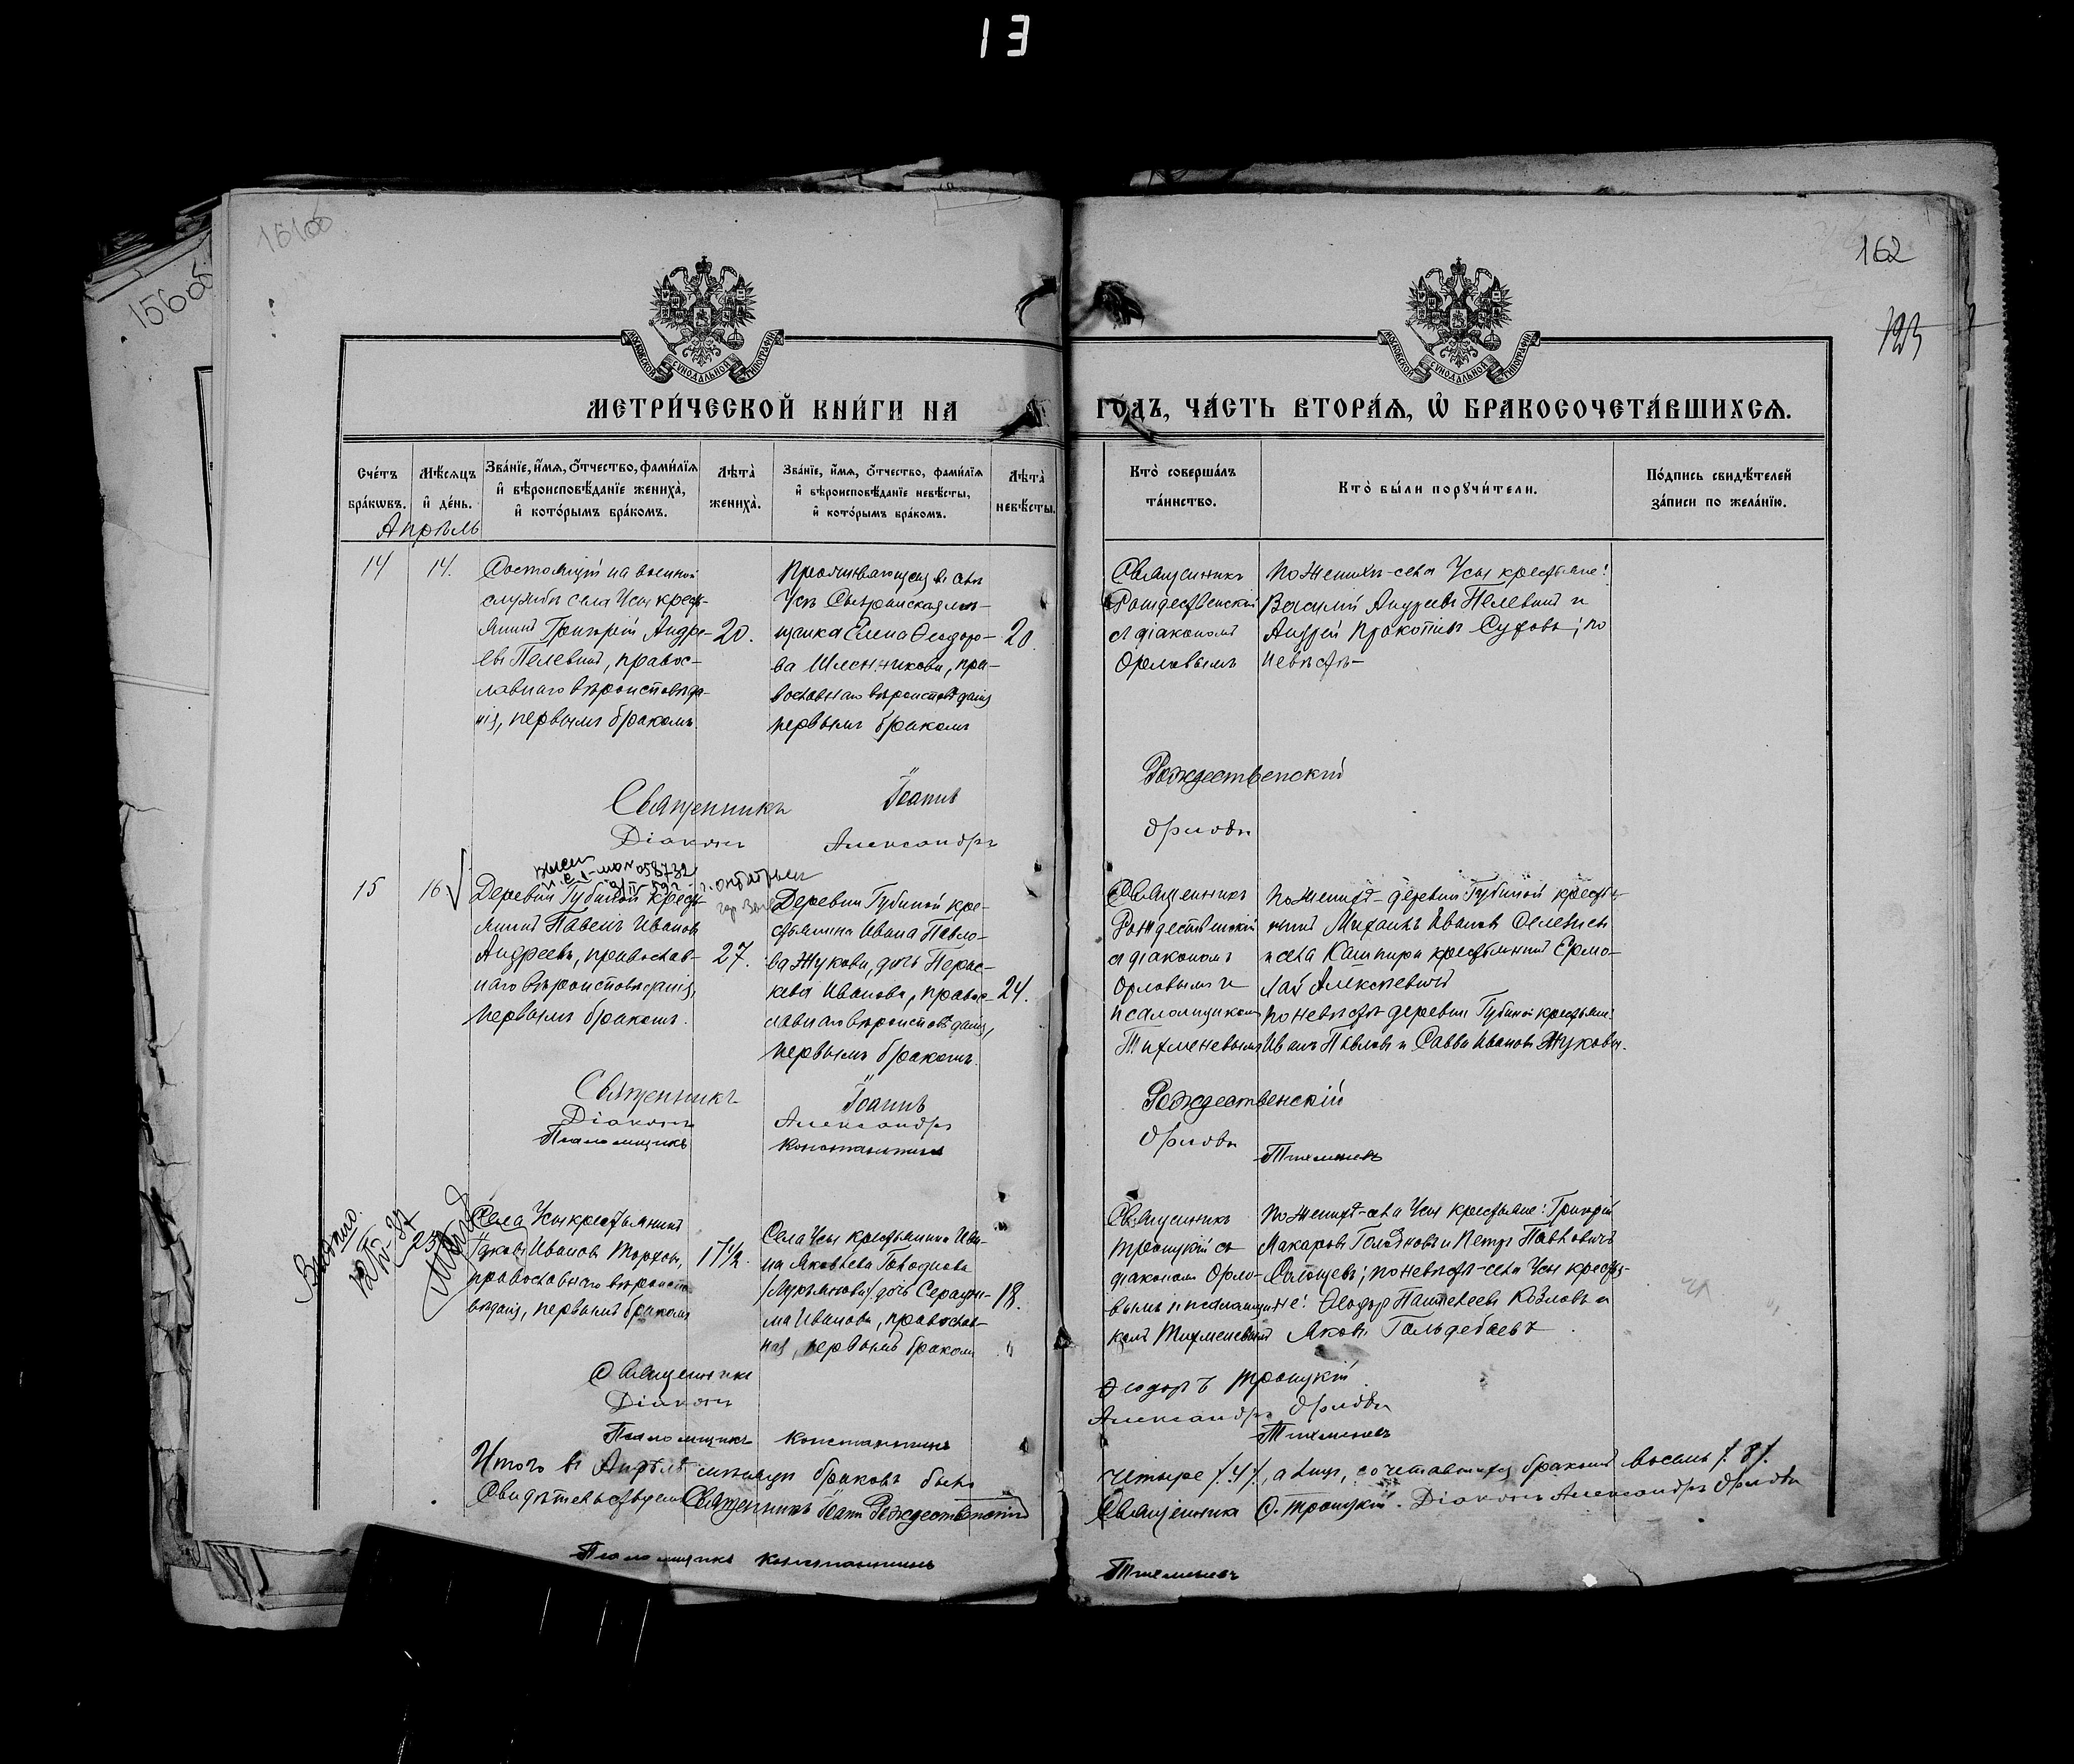 13
162
МОСКОВСКОЙ СѴНОДАЛЬНОЙ ТИПОГРАФІИ
МОСКОВСКОЙ СѴНОДАЛЬНОЙ ТИПОГРАФІИ
МЕТРИ́ЧЕСКОЙ КНИ́ГИ НА ГО́ДЪ, ЧА́СТЬ ВТОРА́Я, Ѽ БРАКОСОЧЕТА́ВШИХСЯ.
Сче́тъ
бра́кѡвъ.
Мѣ́сяцъ
и҆ де́нь.
Зва́нїе, и҆́мя, ѻ҆́тчество, фами́лїя
и҆ вѣроисповѣ́данїе жениха̀,
и҆ кото́рымъ бра́комъ.
Лѣта̀
жениха̀.
Зва́нїе, и҆́мя, ѻ҆́тчество, фами́лїя
и҆ вѣроисповѣ́данїе невѣ́сты,
и҆ кото́рымъ бра́комъ.
Лѣта̀
невѣ́сты.
Кто̀ соверша́лъ
та́инство.
Кто̀ бы́ли порꙋчи́тели.
По́дпись свидѣ́телей
за́писи по жела́нїю.
Апрѣль
14
14.
Состоящій на военной
службѣ села Усы кресть-
янинъ Григорій Андре-
евъ Пелевинъ, правос-
лавнаго вѣроисповѣда-
нія, первымъ бракомъ.
20.
Проживающая въ селѣ
Усѣ Сызранская мѣ-
щанка Елена Ѳеодоро-
ва, пра-
вославнаго вѣроисповѣданія
первымъ бракомъ
20
Священникъ
Рождественскій
съ діакономъ
Орловымъ
По женихѣ - села Усы крестьяне:
Василій Андреевъ Пелевинъ и
Андрей Прокопіевъ Суховъ; по
невѣстѣ-
Священникъ Іоаннъ Рождественскій
Діаконъ Александръ Орловъ
15
16
Деревни Губиной кресть-
янинъ Павелъ Ивановъ
Андреевъ, православ-
наго вѣроисповѣданія,
первымъ бракомъ.
27.
Деревни Губиной кре-
стьянина Ивана Павло-
ва Жукова, дочь Парас-
кева Иванова, правос-
лавнаго вѣроисповѣданія,
первымъ бракомъ.
24.
Священникъ
Рождественскій
съ діакономъ
Орловымъ и
псаломщикомъ
Тихменевымъ
По женихѣ - деревни Губиной крестья-
нинъ Михаилъ Ивановъ
и села Кашпира крестьянинъ Ермо-
лай Алексѣевъ
по невѣстѣ деревни Губиной крестьяне:
Иванъ Павловъ и Савва Ивановъ Жуковы.
Священникъ Іоаннъ Рождественскій
Діаконъ Александръ Орловъ
Псаломщикъ Константинъ Тихменевъ
Села Усы крестьянинъ
Яковъ Ивановъ
православнаго вѣроиспо-
вѣданія, первымъ бракомъ
17½.
Села Усы крестьянина Ива-
на Яковлева
дочь Серафи-
ма Иванова, православ-
ная, первымъ бракомъ
18.
Священникъ
Троицкій съ
діакономъ Орло-
вымъ и псаломщи-
комъ Тихменевымъ
По женихѣ - села Усы крестьяне: Григорій
Макаровъ и Петръ
по невѣстѣ - села Усы крестья-
не: Ѳеодоръ Пантелеевъ Козловъ и
Яковъ
Священникъ Ѳеодоръ Троицкій
Діаконъ Александръ Орловъ
Псаломщикъ Константинъ Тихменевъ
Итого въ Апрѣлѣ мѣсяцѣ браковъ было четыре /4/, а лицъ, сочетавшихся бракомъ восемь /8/.
Свидѣтельствуемъ Священникъ Іоаннъ Рождественскій Священникъ Ѳ. Троицкій. Діаконъ Александръ Орловъ
Псаломщикъ Константинъ Тихменевъ